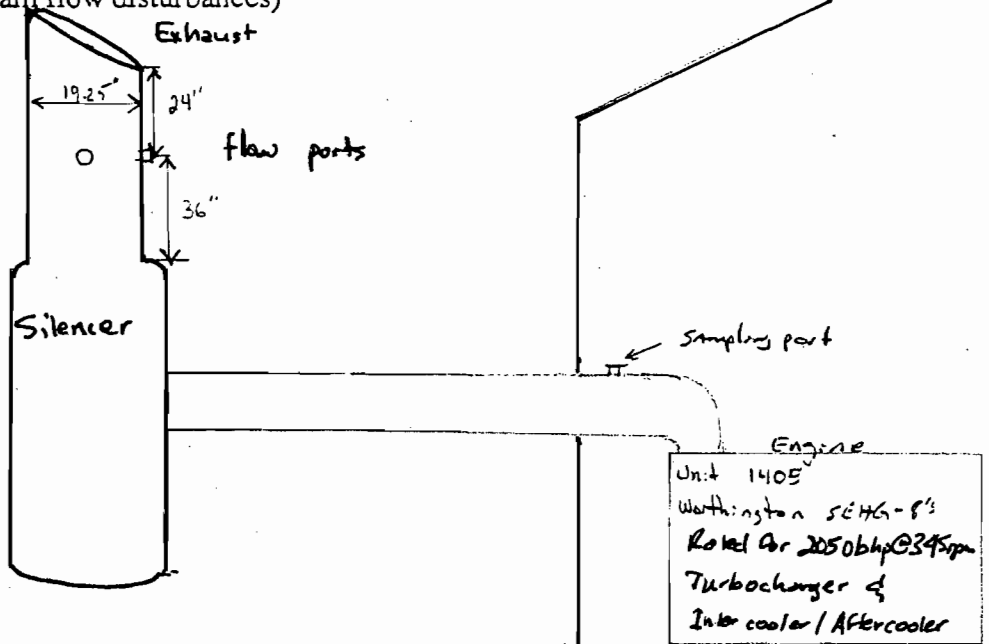 flow disturbances)
Exhaust
19.25"
24"
flow ports
36"
Silencer
Sampling port
Engine
Unit 1405
Worthington SEHG-8's
Rated for 2050bhp@345rpm
Turbocharger &
Intercooler / Aftercooler